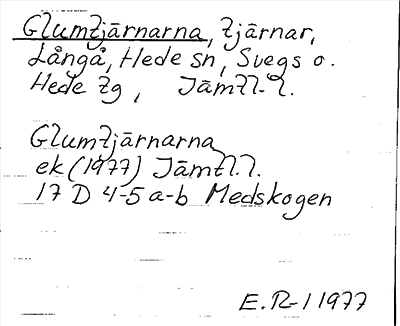 Glumtjärnarna, tjärnar,
Långå, Hede sn, Svegs o.
Hede tg, Jämtl. l.
Glumtjärnarna
ek (1977) Jämtl. l.
17 D 4-5 a-b Medskogen
E. R-l 1977